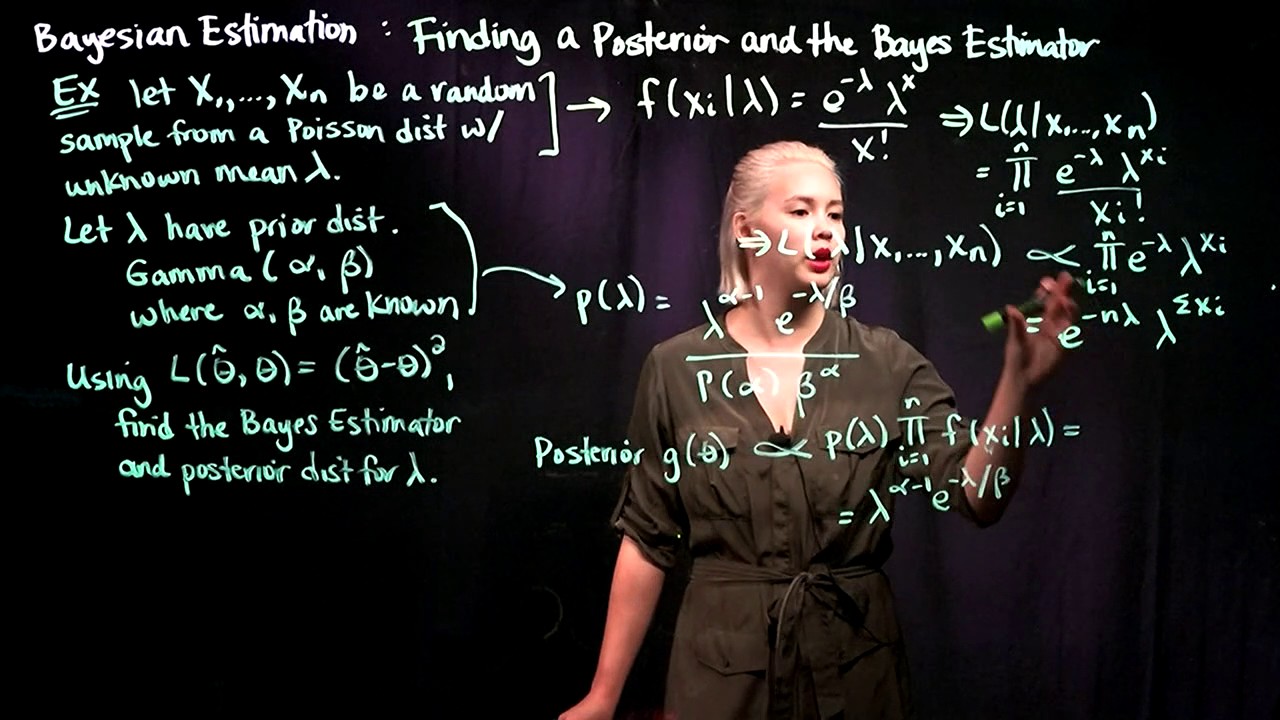 Bayesian Estimation : Finding a Posterior and the Bayes Estimator
Ex let X₁,...,Xn be a random
sample from a Poisson dist w/
unknown mean λ.
→ f(xi|λ) = e^{-λ} λ^x / x!
⇒ L(λ|x₁...,xn)
= ∏_{i=1}^{n} e^{-λ} λ^{xi} / xi!
⇒ L(λ|x₁...,xn) ∝ ∏_{i=1}^{n} e^{-λ} λ^{xi}
= e^{-nλ} λ^{Σxi}
Let λ have prior dist.
Gamma (α, β)
where α, β are known
→ p(λ) = λ^{α-1} e^{-λ/β} / Γ(α) β^α
Using L(θ̂, θ) = (θ̂-θ)²,
find the Bayes Estimator
and posterior dist for λ.
Posterior g(θ) ∝ p(λ) ∏_{i=1}^{n} f(xi|λ) =
= λ^{α-1} e^{-λ/β}